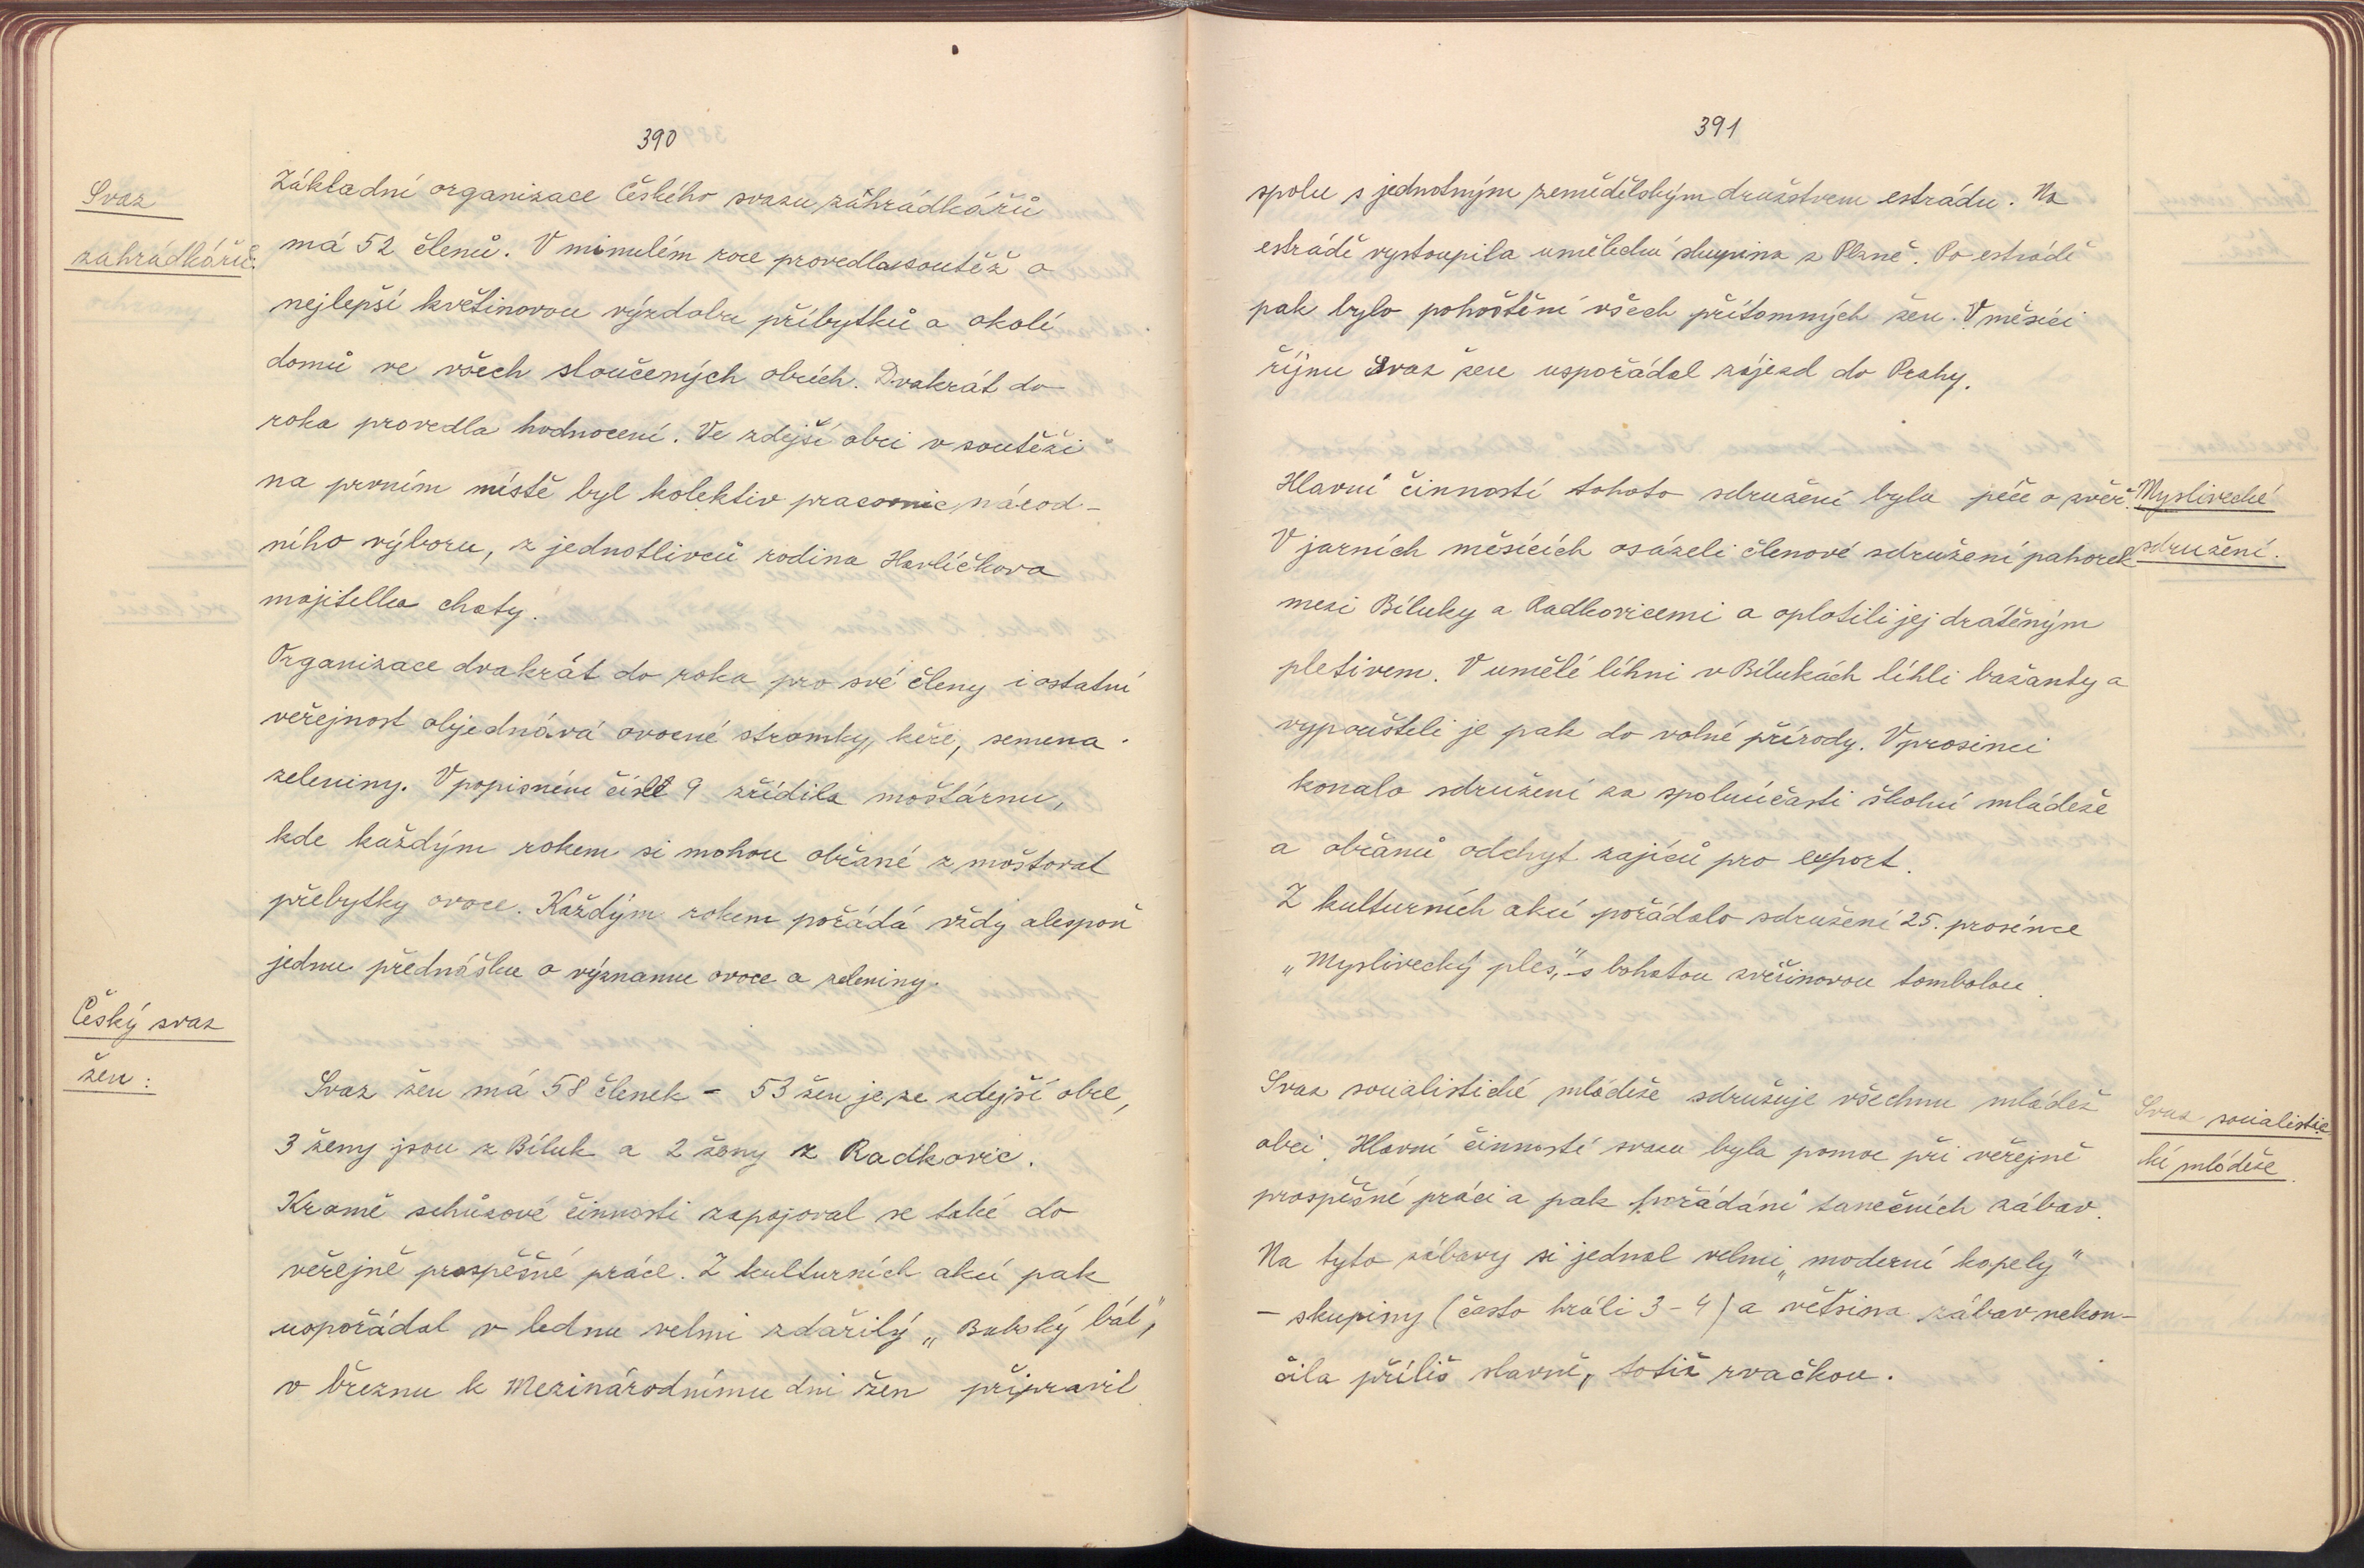 390
Svaz
zahrádkářů:
Základní organizace Českého svazu zahrádkářů
má 52 členů. V minulém roce provedla soutěž o
nejlepší květinovou výzdobu příbytků a okolí
domů ve všech sloučených obcích. Dvakrát do
roka provedla hodnocení. Ve zdejší obci v soutěži
na prvním místě byl kolektiv pracovnic národ-
ního výboru, z jednotlivců rodina Havlíčkova
majitelka chaty.
Organizace dvakrát do roka pro své členy i ostatní
veřejnost objednává ovocné stromky, keře, semena
zeleniny. V popisném čísle 9 zřídila moštárnu,
kde každým rokem si mohou občané z moštovat
přebytky ovoce. Každým rokem pořádá vždy alespoň
jednu přednášku o významu ovoce a zeleniny.
Český svaz
žen:
Svaz žen má 58 členek - 53 žen je ze zdejší obce,
3 ženy jsou z Bíluk a 2 ženy z Radkovic.
Kromě schůzové činnosti zapojoval se také do
veřejně prospěšné práce. Z kulturních akcí pak
uspořádal v lednu velmi zdařilý „Babský bál",
v březnu k Mezinárodnímu dni žen připravil
391
spolu s jednotným zemědělským družstvem estrádu. Na
estrádě vystoupila umělecká skupina z Plzně. Po estrádě
pak bylo pohoštění všech přítomných žen. V měsíci
říjnu Svaz žen uspořádal zájezd do Prahy.
Myslivecké
sdružení.
Hlavní činností tohoto sdružení byla péče o zvěř.
V jarních měsících osázeli členové sdružení pahorek
mezi Bíluky a Radkovicemi a oplotili jej drátěným
pletivem. V umělé líhni v Bílukách líhli bažanty a
vypouštěli je pak do volné přírody. V prosinci
konalo sdružení za spoluúčasti školní mládeže
a občanů odchyt zajíců pro export.
Z kulturních akcí pořádalo sdružení 25. prosince
„Myslivecký ples," s bohatou zvěřinovou tombolou.
Svaz socialistic
ké mládeže.
Svaz socialistické mládeže sdružuje všechnu mládež
obci. Hlavní činností svazu byla pomoc při veřejně
prospěšné práci a pak pořádání tanečních zábav.
Na tyto zábavy si jednal velmi „moderní kapely"
- skupiny (často hráli 3-4) a většina zábav nekon-
čila příliš slavně, totiž rvačkou.